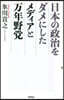 日本の政治を
ダメにした
メディアと
万年野党
氷川貴之